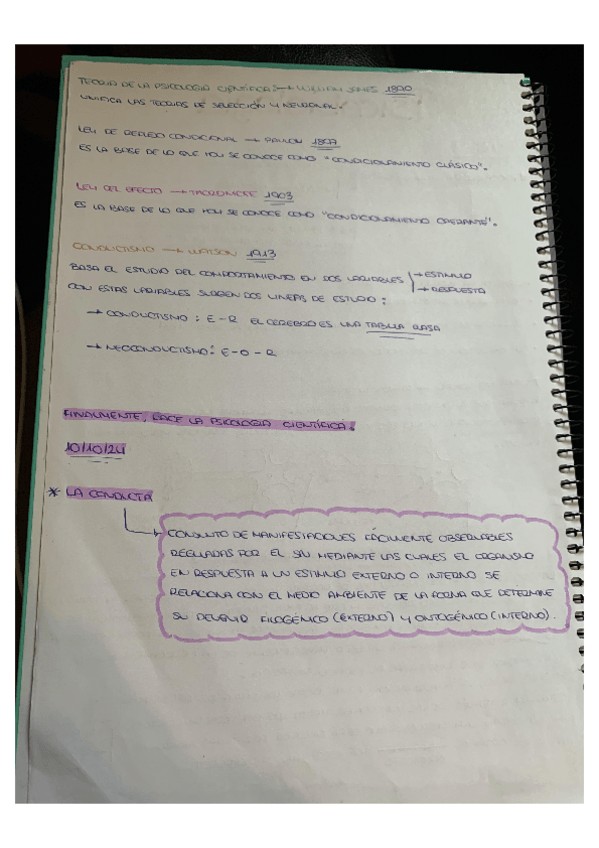 TEORIA DE LA PSICOLOGIA CIENTÍFICA → WILLIAM JAMES 1890
UNIFICA LAS TEORIAS DE SELECCIÓN Y NEURONAL.
LEY DE REFLEJO CONDICIONAL → PAVLOV 1897
ES LA BASE DE LO QUE HOY SE CONOCE COMO "CONDICIONAMIENTO CLÁSICO".
LEY DEL EFECTO → THORNDIKE 1903
ES LA BASE DE LO QUE HOY SE CONOCE COMO "CONDICIONAMIENTO OPERANTE".
CONDUCTISMO → WATSON 1913
BASA EL ESTUDIO DEL COMPORTAMIENTO EN DOS VARIABLES → ESTIMULO
→ RESPUESTA
CON ESTAS VARIABLES SURGEN DOS LINEAS DE ESTUDIO:
→ CONDUCTISMO: E-R EL CEREBRO ES UNA TABULA RASA
→ NEOCONDUCTISMO: E-O-R
FINALMENTE, NACE LA PSICOLOGIA CIENTÍFICA.
10/10/24
* LA CONDUCTA
→ CONJUNTO DE MANIFESTACIONES FÁCILMENTE OBSERVABLES
REGULADAS POR EL SN MEDIANTE LAS CUALES EL ORGANISMO
EN RESPUESTA A UN ESTIMULO EXTERNO O INTERNO SE
RELACIONA CON EL MEDIO AMBIENTE DE LA FORMA QUE DETERMINE
SU DEVENIR FILOGÉNICO (EXTERNO) Y ONTOGÉNICO (INTERNO).